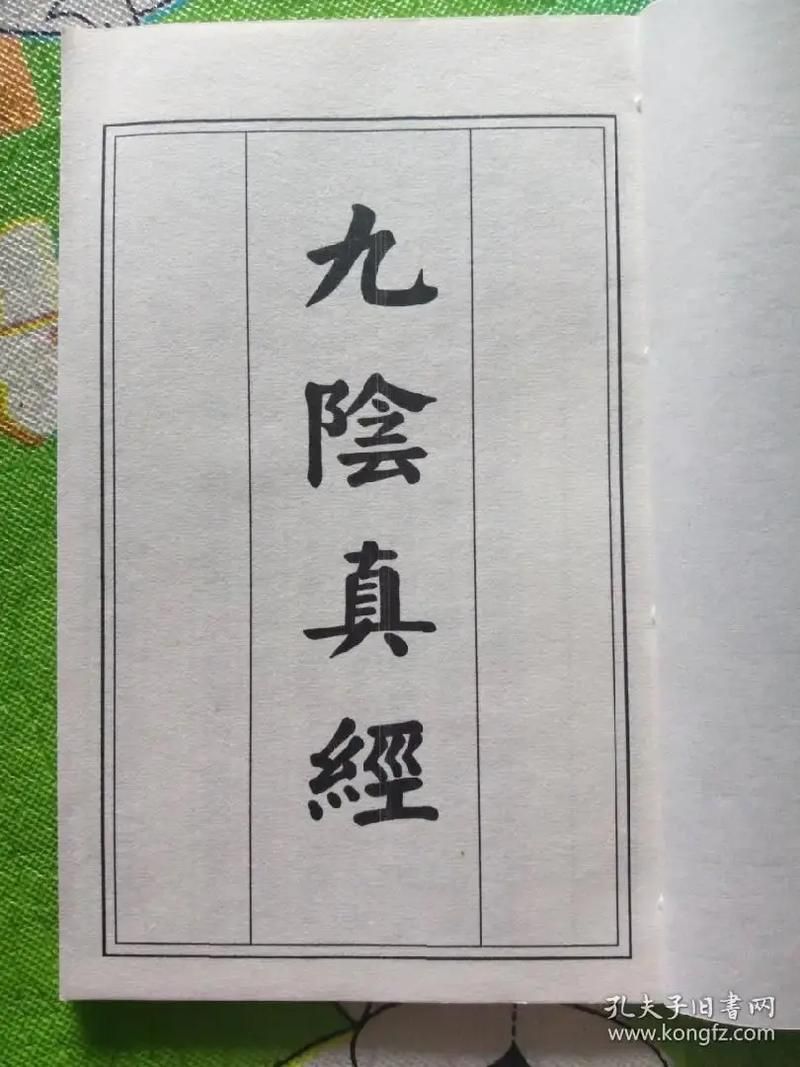 九陰真經
孔夫子旧書网
www.kongfz.com